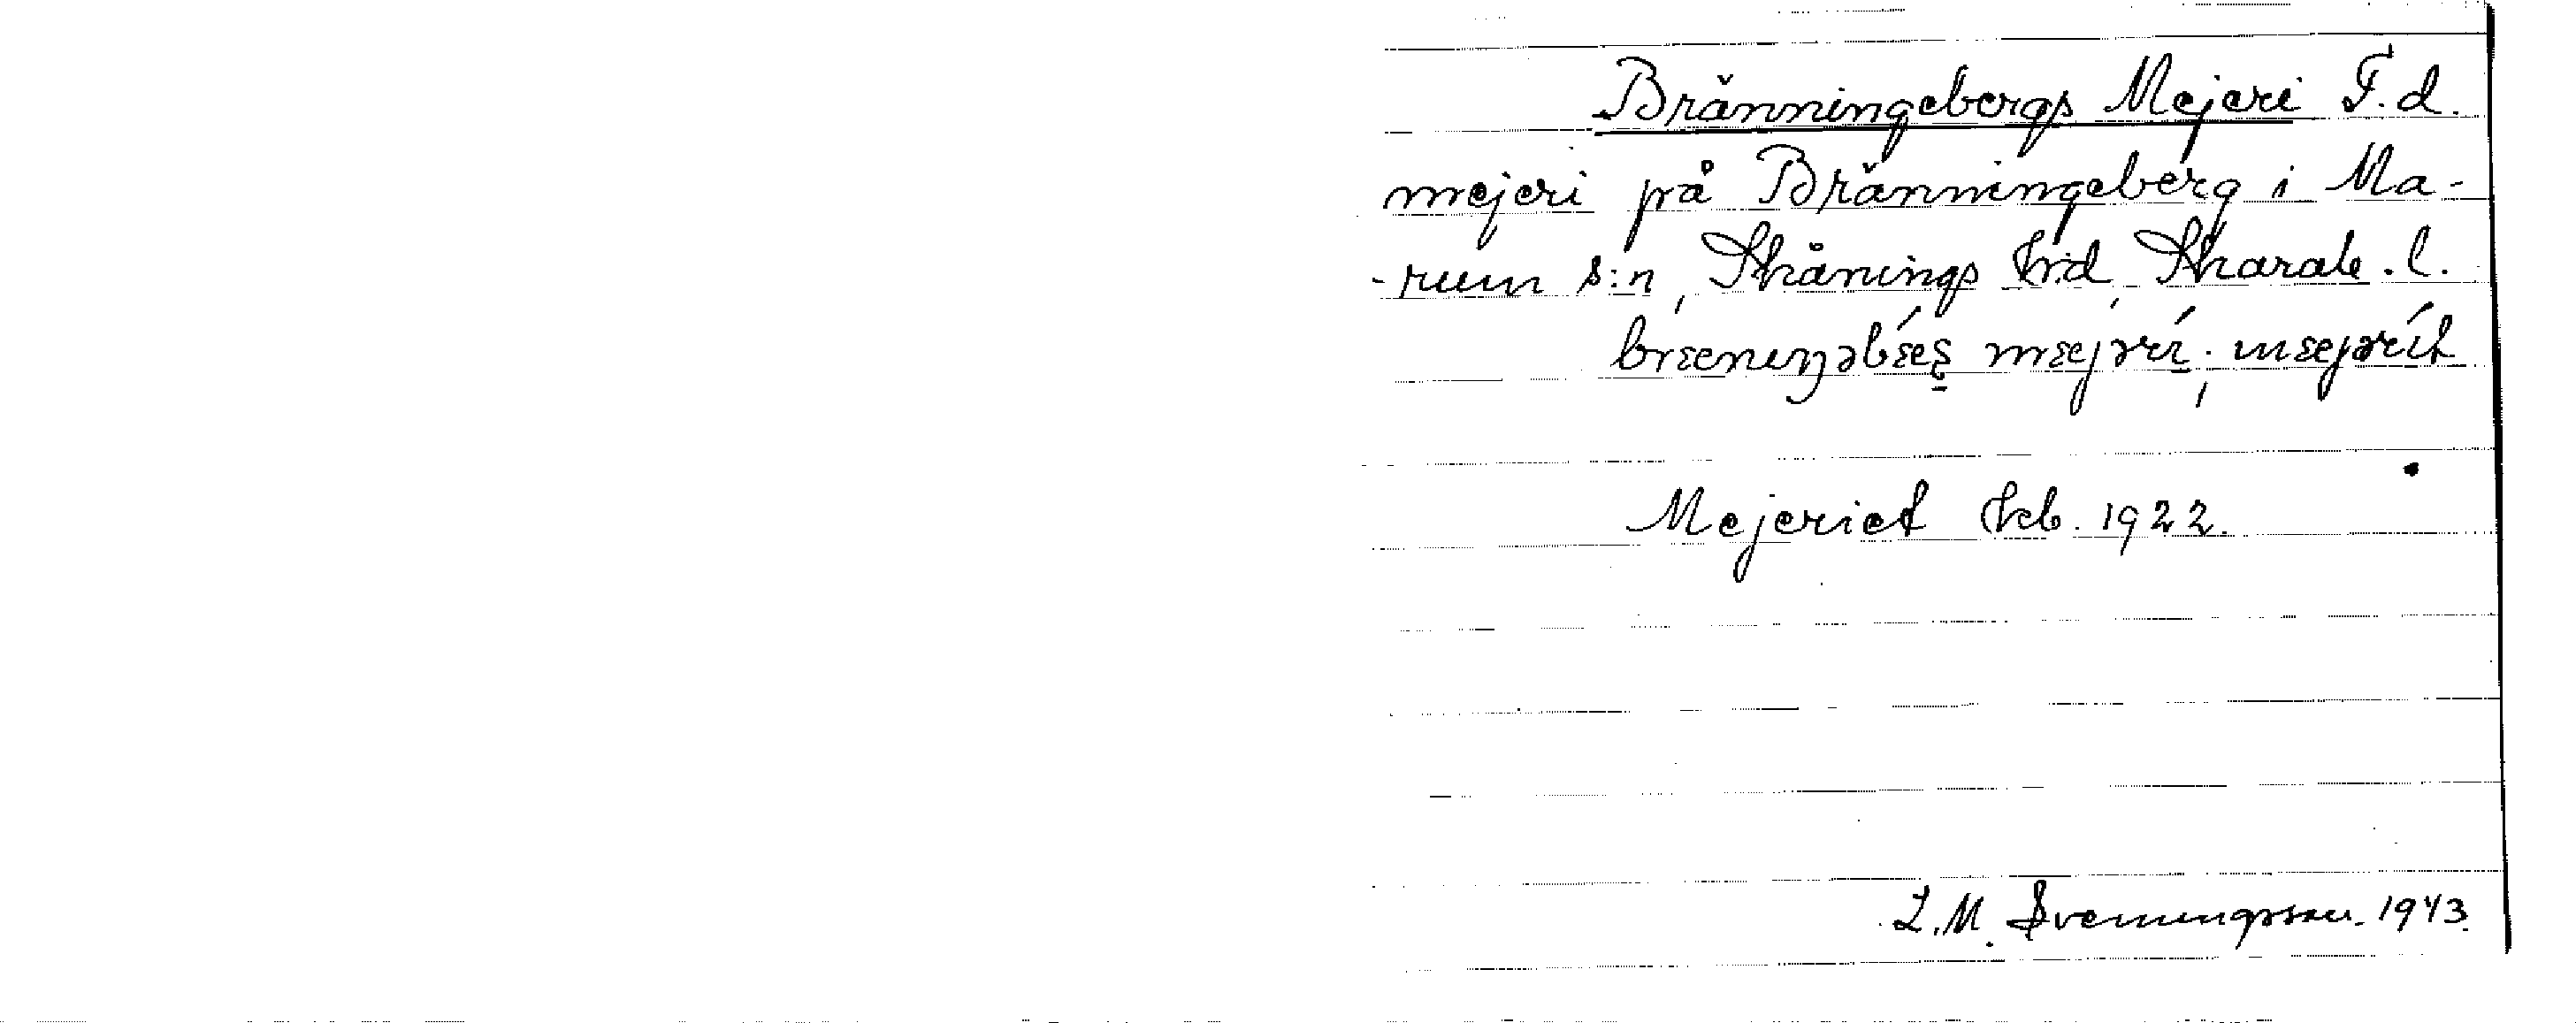 Bränningebergs Mejeri F.d.
mejeri på Bränningeberg i Ma-
-rum s:n, Skånings hd, Skarab. l.
mejəri; mejərit
Mejeriet Kb. 1922.
L.M. Svenungsson. 1943.